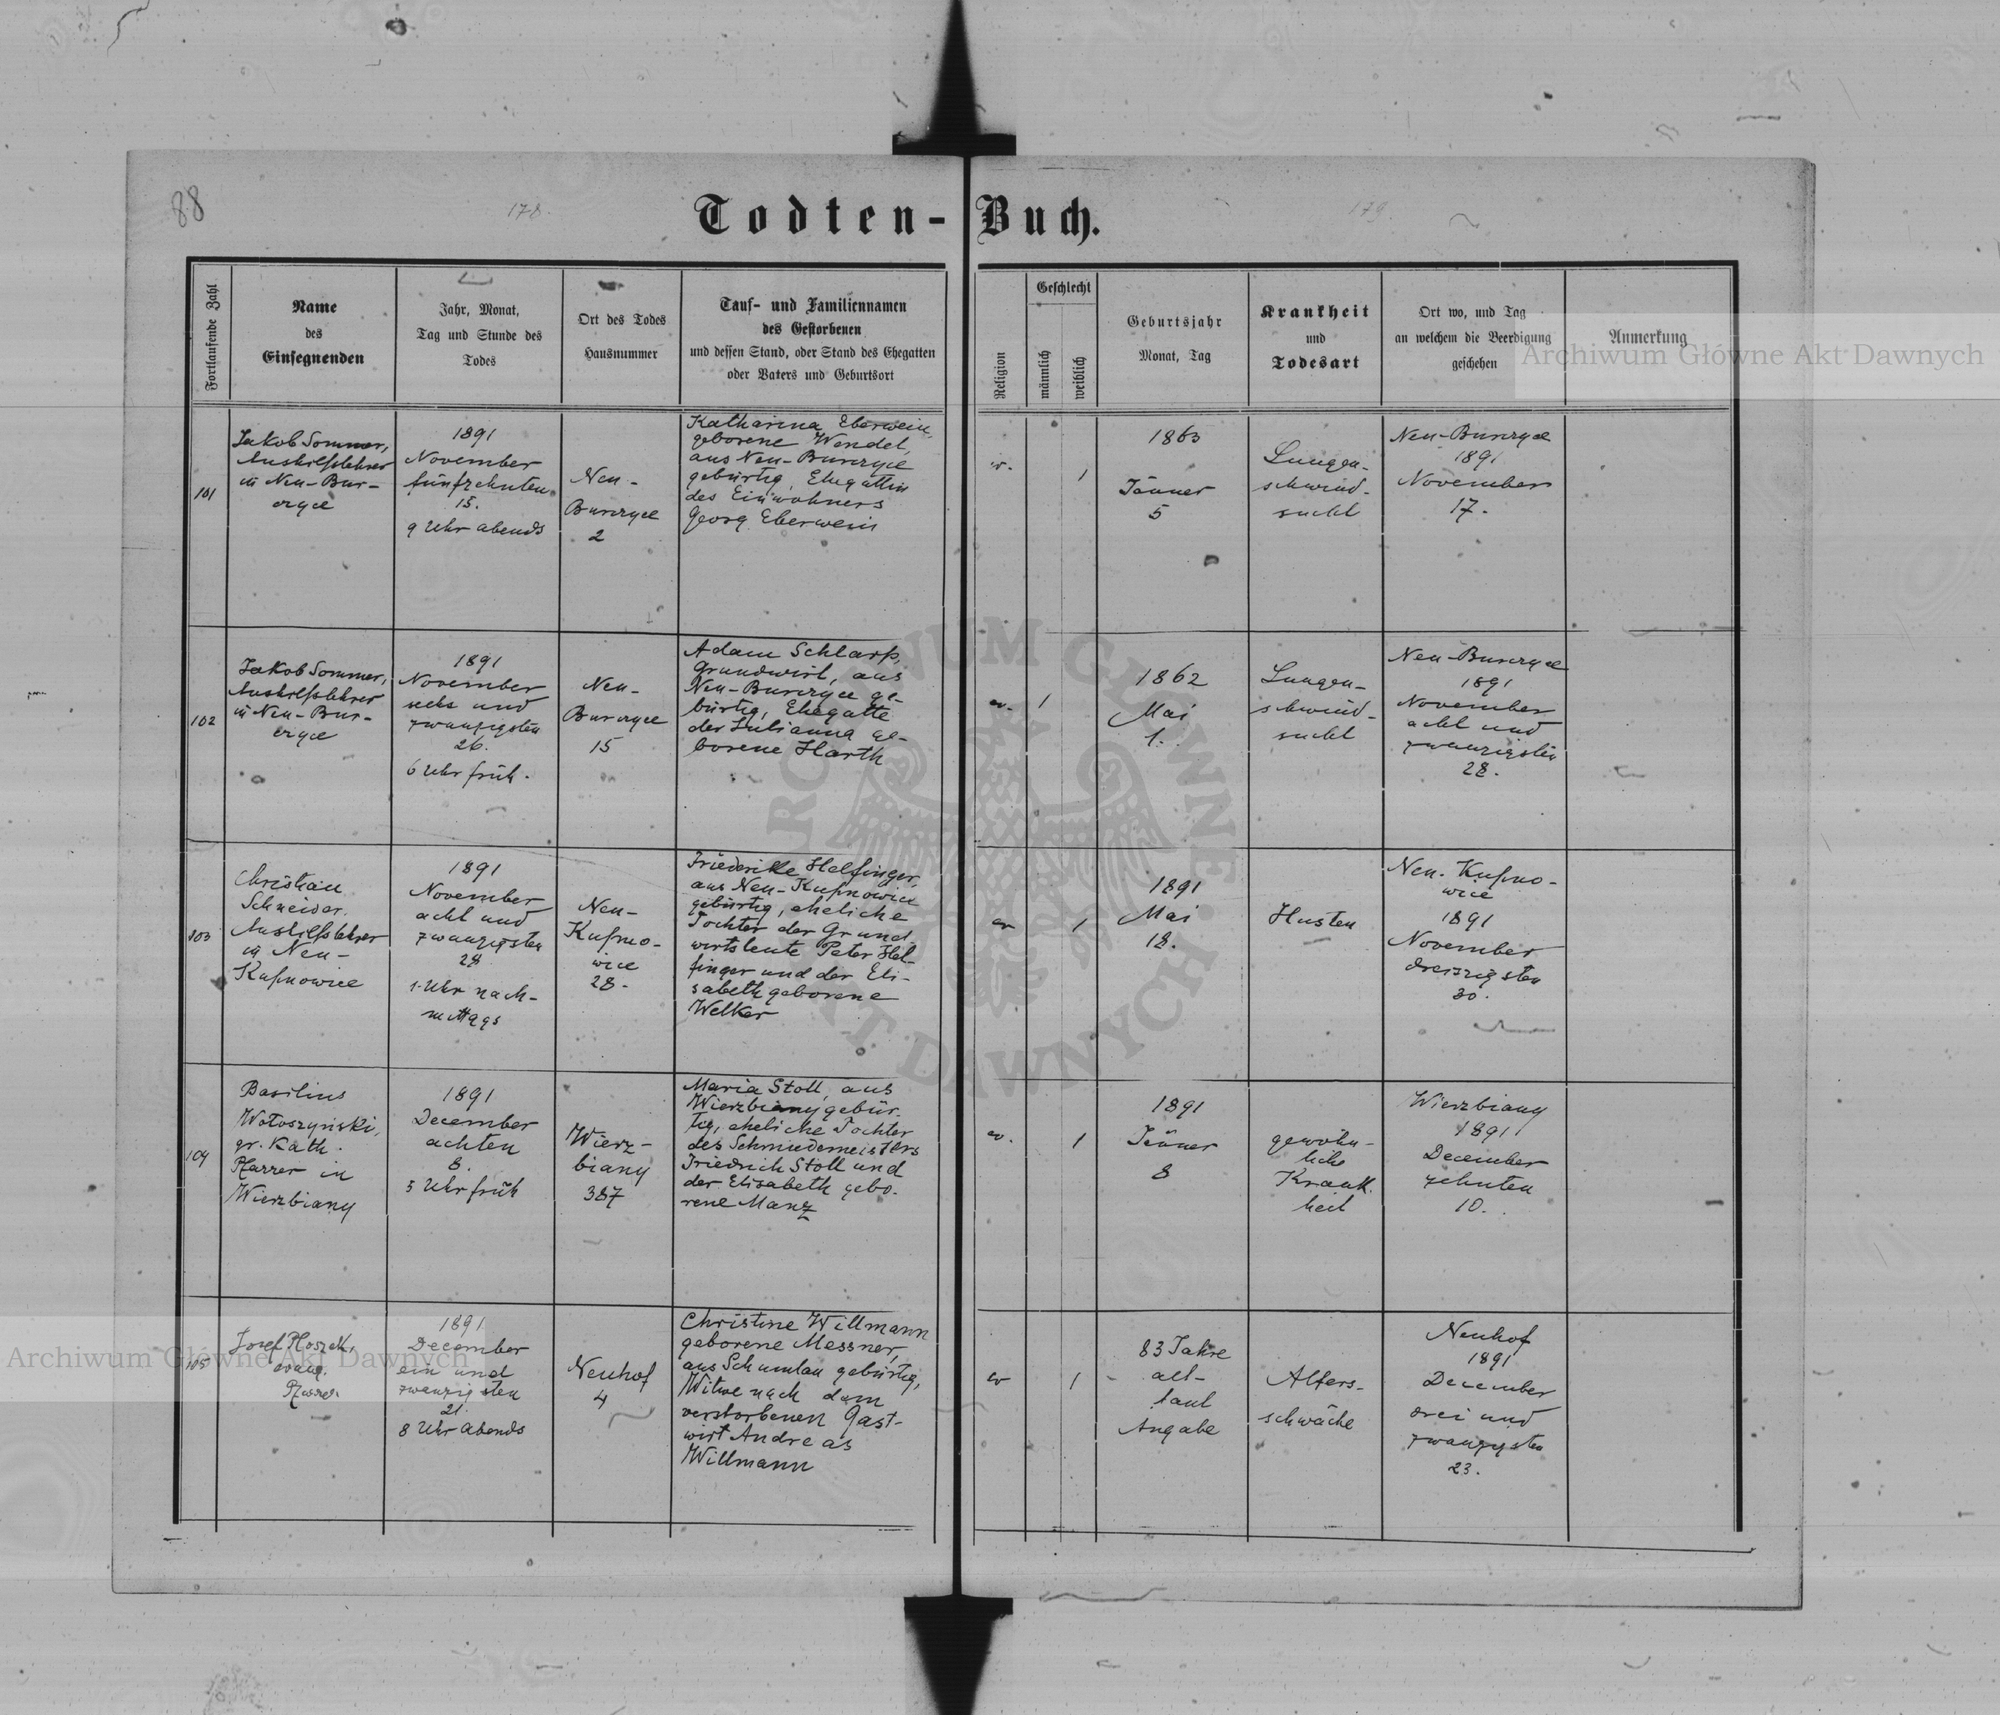 88
178.
Todten-Buch.
179.
Fortlaufende Zahl
Name
des
Einsegnenden
Jahr, Monat,
Tag und Stunde des
Todes
Ort des Todes
Hausnummer
Tauf- und Familiennamen
des Gestorbenen
und dessen Stand, oder Stand des Ehegatten
oder Vaters und Geburtsort
Religion
Geschlecht
männlich
weiblich
Geburtsjahr
Monat, Tag
Krankheit
und
Todesart
Ort wo, und Tag
an welchem die Beerdigung
geschehen
Anmerkung
Archiwum Główne Akt Dawnych
101
Jakob Sommer,
Aushilfslehrer
in Neu-Bur-
czyce
1891
November
fünfzehnten
15.
9 Uhr abends
Neu-
Burczyce
2
Katharina Eberwein,
geborene Wendel,
aus Neu-Burczyce
gebürtig, Ehegattin
des Einwohners
Georg Eberwein
ev.
1
1863
Jänner
5
Lungen-
schwind-
sucht
Neu-Burczyce
1891
November
17.
102
Jakob Sommer,
Aushilfslehrer
in Neu-Bur-
czyce
1891
November
sechs und
zwanzigsten
26.
6 Uhr früh.
Neu-
Burczyce
15
Adam Schlarp,
Grundwirt, aus
Neu-Burczyce ge-
bürtig, Ehegatte
der Julianna ge-
borene Harth
ev.
1
1862
Mai
1.
Lungen-
schwind-
sucht
Neu-Burczyce
1891
November
acht und
zwanzigsten
28.
103
Christian
Schneider
Aushilfslehrer
in Neu-
Kupnowice
1891
November
acht und
zwanzigsten
28
1 Uhr nach-
mittags
Neu-
Kupno-
wice
28.
Friederike Helfinger,
aus Neu-Kupnowice
gebürtig, eheliche
Tochter der Grund
wirtsleute Peter Hel-
finger und der Eli-
sabeth geborene
Welker
ev
1
1891
Mai
18.
Husten
Neu-Kupno-
wice
1891
November
dreizzigsten
30.
104
Basilius
Wołoszyński,
gr. Kath.
Pfarrer in
Wierzbiany
1891
December
achten
8.
5 Uhr früh
Wierz-
biany
387
Maria Stoll, aus
Wierzbiany gebür-
tig, eheliche Tochter
des Schmiedemeisters
Friedrich Stoll und
der Elisabeth gebo-
rene Manz
ev.
1
1891
Jänner
8
gewöhn-
liche
Krank
heit
Wierzbiany
1891
December
zehnten
10.
105
Josef Ploszek,
evang.
Pfarrer
1891
December
ein und
zwanzigsten
21.
8 Uhr Abends
Neuhof
4
Christine Willmann
geborene Messner,
aus Schumlau gebürtig,
Witwe nach dem
verstorbenen Gast-
wirt Andreas
Willmann
ev
1
83 Jahre
alt-
laut
Angabe
Alters-
schwäche
Neuhof
1891
December
drei und
zwanzigsten
23.
Archiwum Główne Akt Dawnych
ARCHIWUM GŁÓWNE AKT DAWNYCH